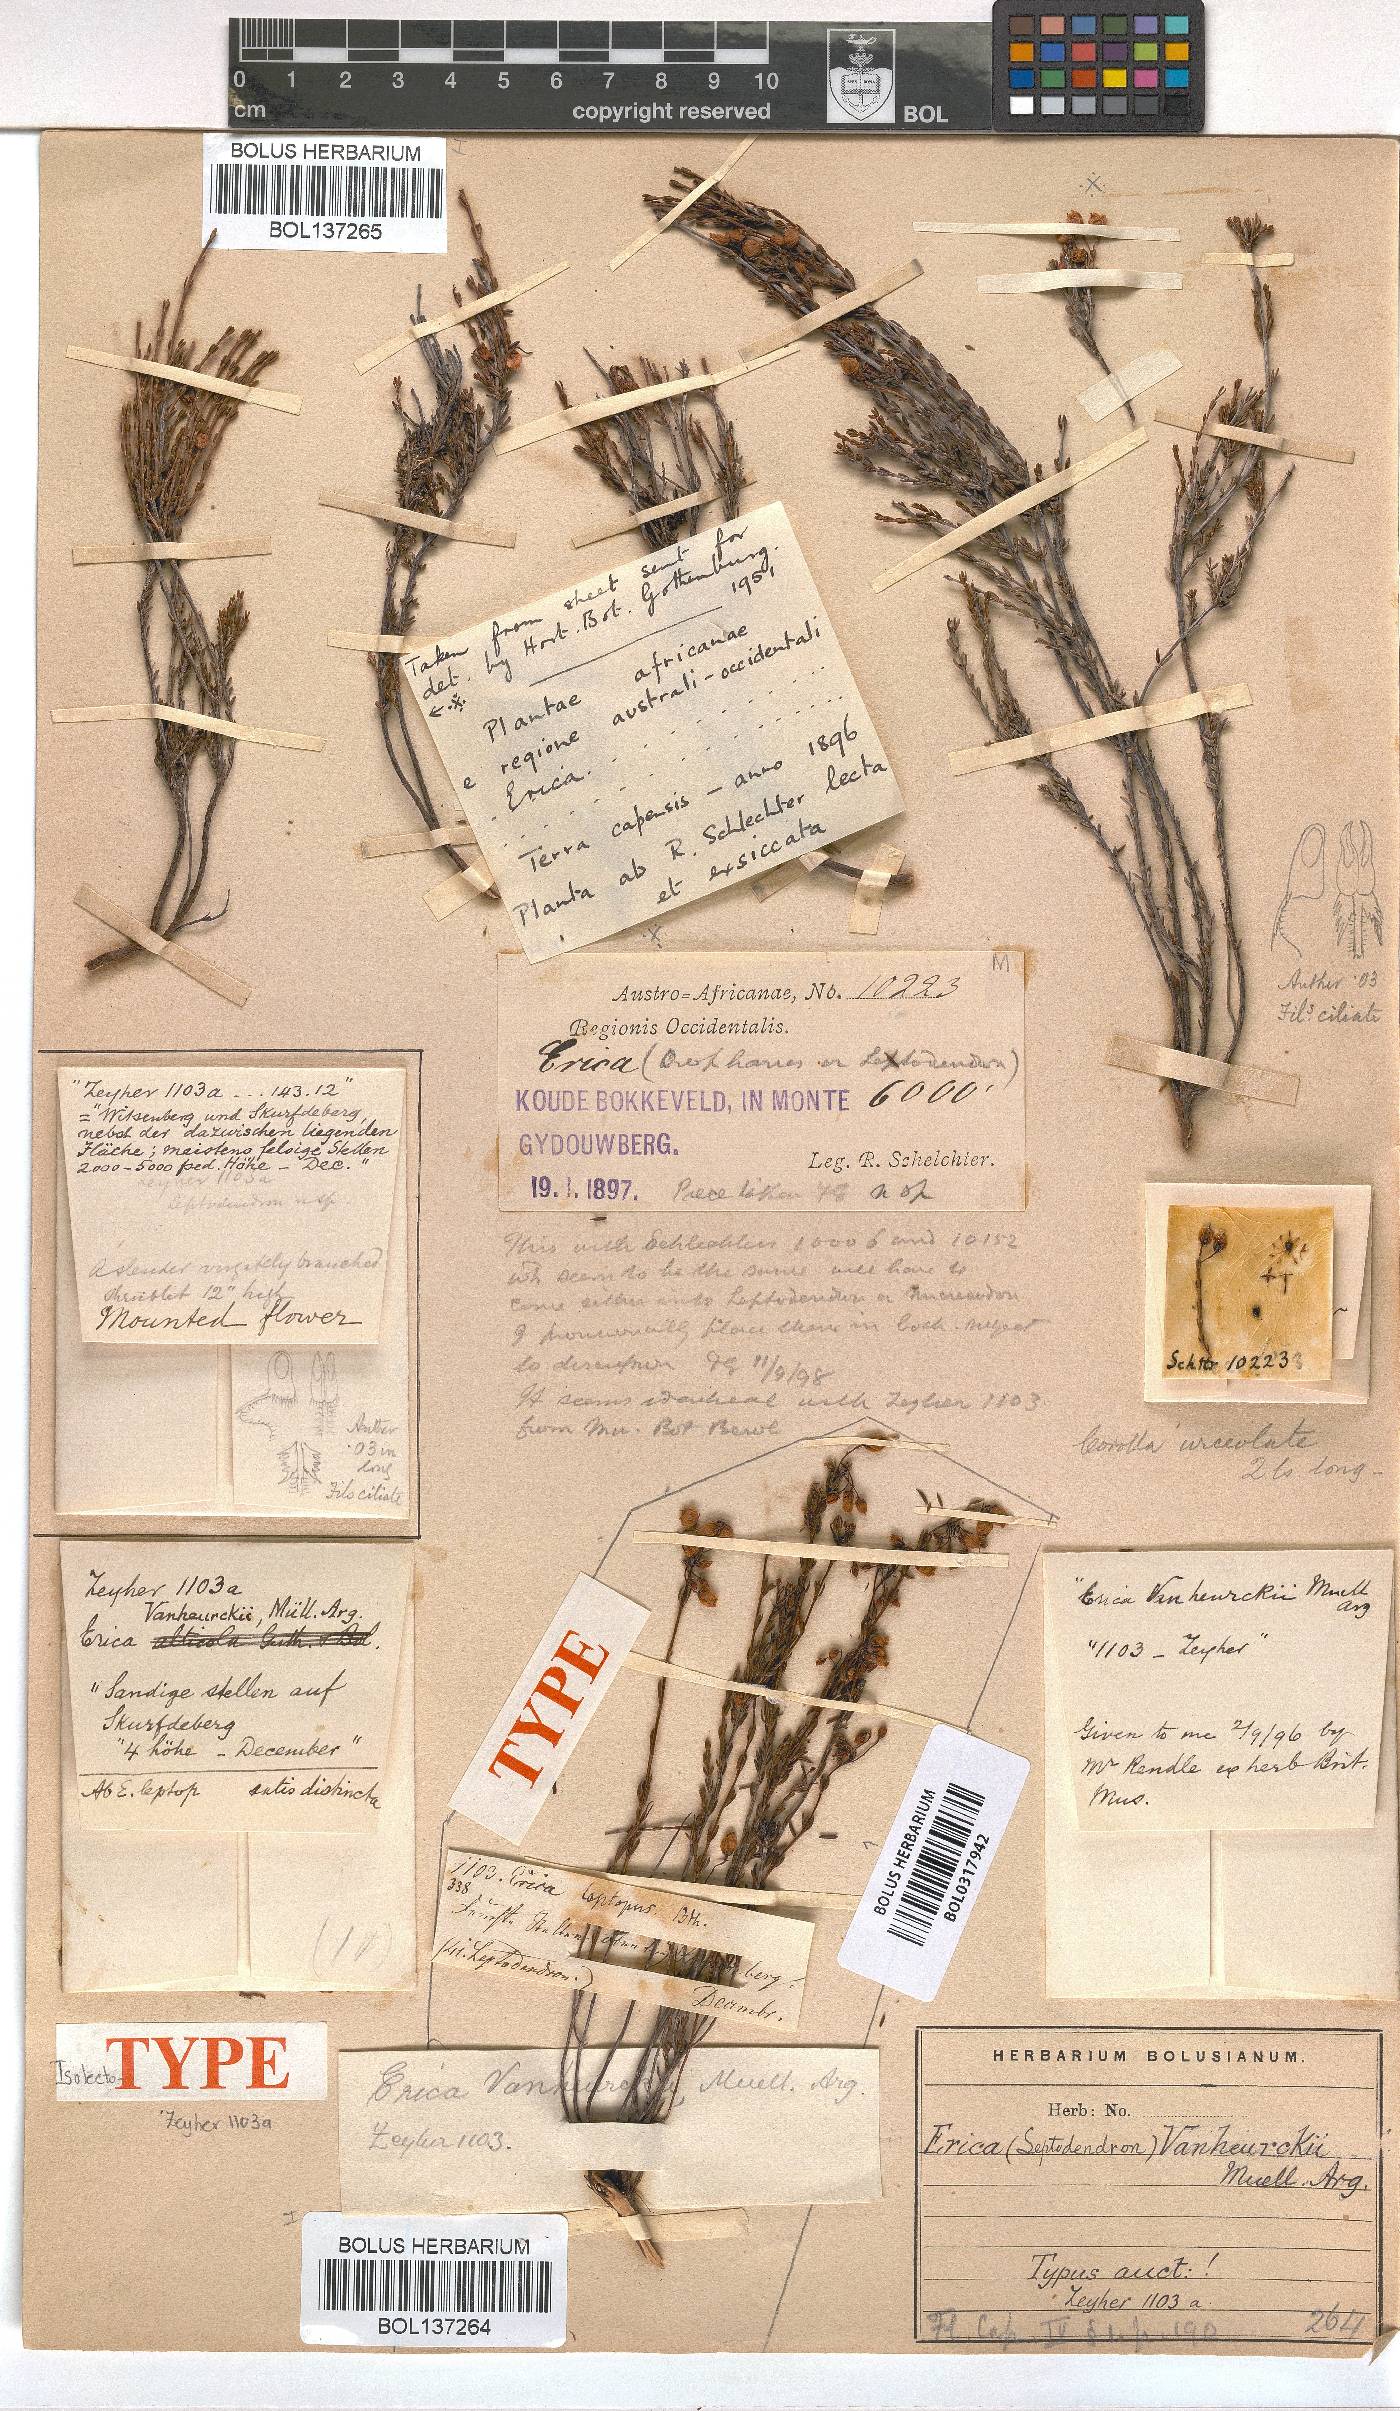 0 1 2 3 4 5 6 7 8 9 10
cm
copyright reserved
BOL
BOLUS HERBARIUM
BOL137265
Taken from sheet sent for
det. by Hort. Bot. Gothenburg.
1951
Plantae africanae
e regione australi-occidentali
Erica
Terra capensis - anno 1896
Planta ab R. Schlechter lecta
et exsiccata
M
Austro=Africanae, No. 10223
Regionis Occidentalis.
Erica
KOUDE BOKKEVELD, IN MONTE 6000'
GYDOUWBERG.
Leg. R. Schelchter.
19.1.1897. Piece taken n sp
This with Schlechters 10006 and 10152
wh seem to be the same will have to
come either into Leptodendron or
I provisionally place them in
11/9/98
It seems identical with Zeyher 1103
from Mu. Bot Berol
Anther ·03
Fils ciliate
"Zeyher 1103a ... 143.12"
="Witsenberg und Skurfdeberg,
nebst der dazwischen liegenden
Fläche; meistens felsige Stellen
2000-5000 ped. Höhe - Dec."
Zeyher 1103a
Leptodendron n sp
A slender virgately branched
shrublet 12" high
Mounted flower
Anther
·03 in
long
Fils ciliate
Schltr 10223
Corolla urceolate
2 ls long -
Zeyher 1103a
Vanheurckii, Müll. Arg.
Erica alticola Guth. & Bol.
"Sandige stellen auf
Skurfdeberg
"4 höhe - December"
Ab E. leptop satis distincta
TYPE
BOLUS HERBARIUM
BOL0317942
"Erica Vanheurckii Muell
Arg
"1103 - Zeyher"
Given to me 2/9/96 by
Mr Rendle ex herb Brit.
Mus.
1103. Erica leptopus Bth.
338
(41. Leptodendron.)
Decembr.
Isolecto-
TYPE
Zeyher 1103a
Erica Vanheurckii, Muell. Arg.
Zeyher 1103.
BOLUS HERBARIUM
BOL137264
HERBARIUM BOLUSIANUM.
Herb: No.
Erica (Leptodendron) Vanheurckii
Muell. Arg.
Typus auct: !
Zeyher 1103 a.
Fl. Cap. IV p. 190
264